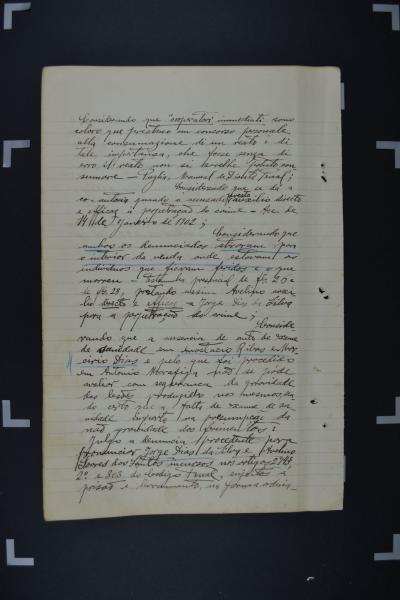 Considerando que "cooperatori immediati sono
coloro che prestano un concorso personale
alla consumazione di un reato e di
tale importanza, che forse senza di
esso il reato non si sarebbe potuto con
sumare — Puglia, Manual de Diritto Penal;
Considerando que se dá a
co-autoria quando o accusado presta auxilio directo
e efficaz á perpetração do crime — Acc. de
14 de Janeiro de 1902;
Considerando que
ambos os denunciados atiraram para
o interior da venda onde estavam os
individuos que ficaram feridos e o que
morreu — prova testemunhal de fls 20 a
28, prestando assim Avelino auxi-
lio directo e efficaz a Jorge Dias da Silva
para a perpetração do crime;
Conside
rando que a ausencia de auto de exame
de sanidade em Anastacio Ribas e Por-
cirio Dias e pelo que foi procedido
em Antonio não se póde
avaliar com segurança da gravidade
das lesões produzidas nos mesmos,
visto que a falta de exame de sa-
nidade importa na presumpção da
não gravidade dos ferimentos:
Julgo a denuncia procedente para
pronunciar Jorge Dias da Silva e Avelino
dos Santos incursos nos artigos 294
2º e 303 do Codigo Penal, sujeitos á
prisão e livramento, na forma